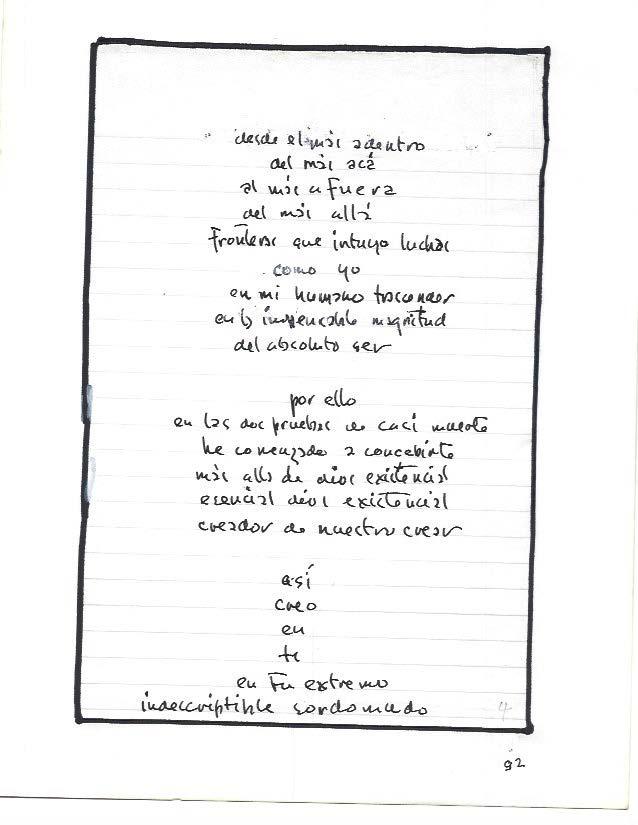 desde el más adentro
del más acá
al más afuera
del más allá
fronteras que intuyo luchar
como yo
en mi humano trasconder
en la impensable magnitud
del absoluto ser
por ello
en las dos pruebas de casi muerte
he comenzado a concebirte
más allá de dios existencial
esencial dios existencial
creador de nuestro crear
así
creo
en
ti
en tu extremo
indescriptible sordomudo
4
92